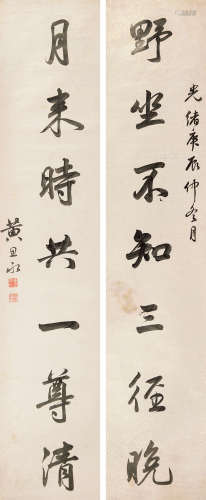 光緒庚辰仲冬月
野坐不知三径晚
月来時共一尊清
黃思永